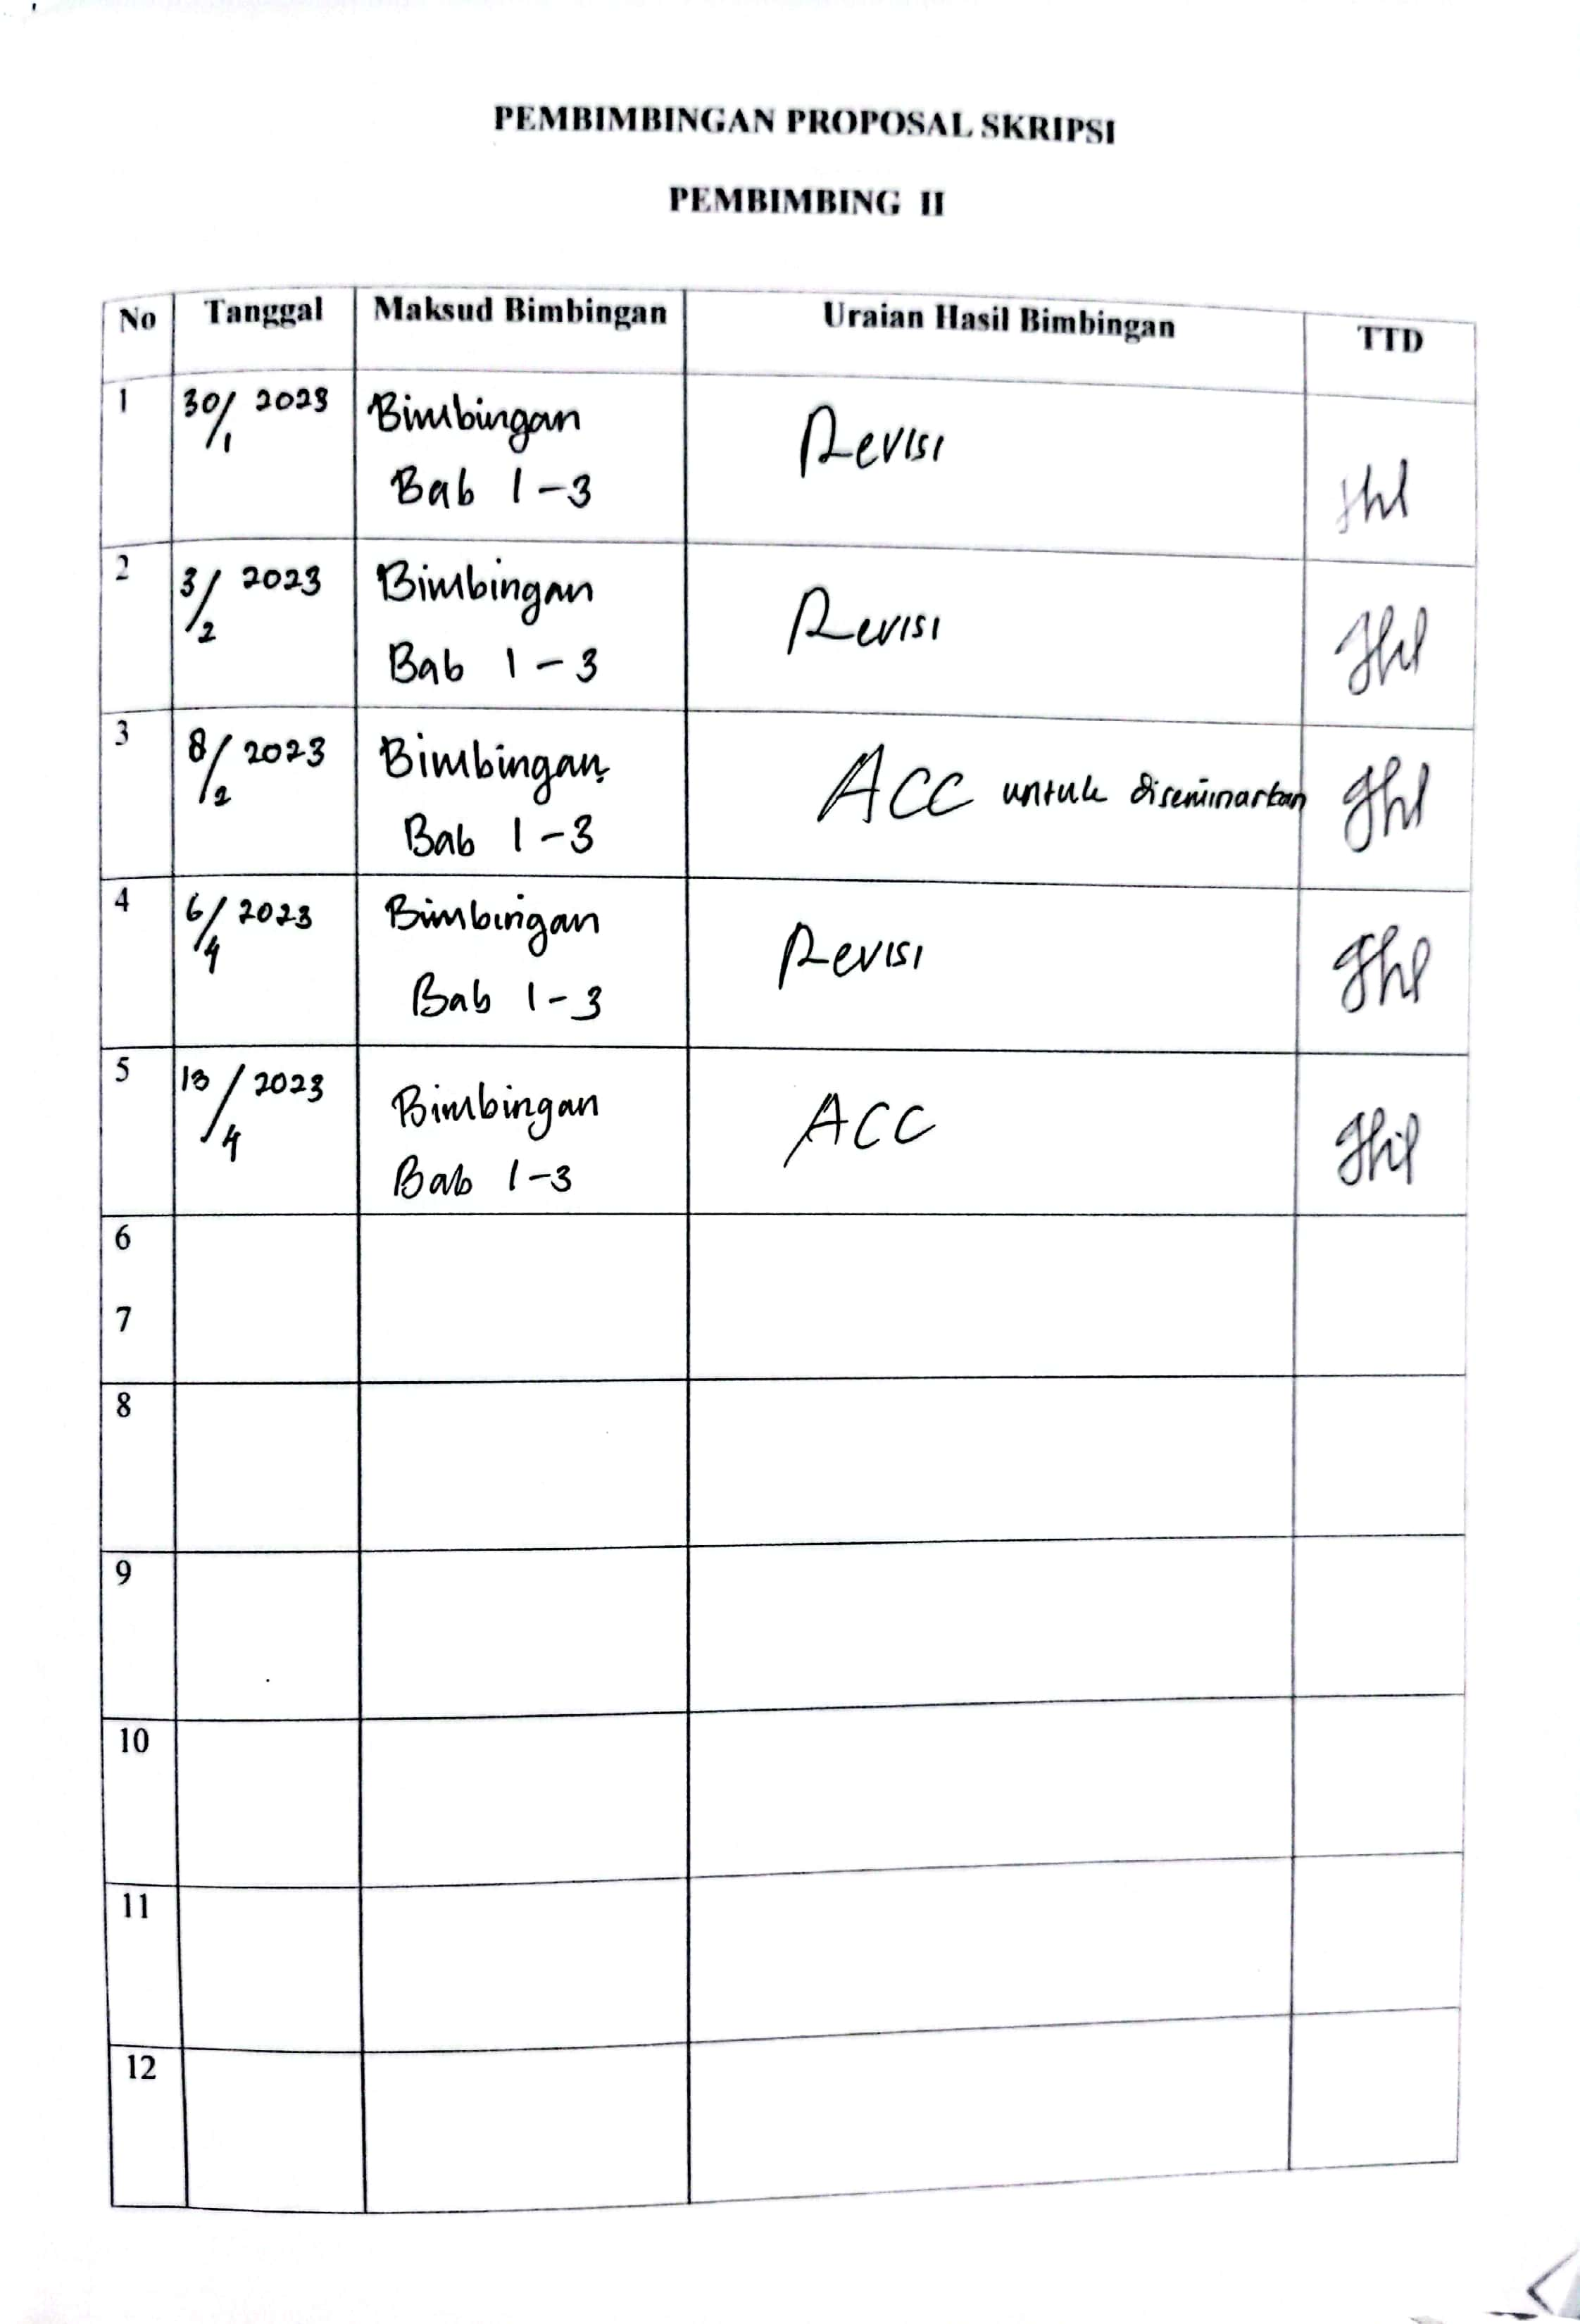 PEMBIMBINGAN PROPOSAL SKRIPSI
PEMBIMBING II
No Tanggal Maksud Bimbingan Uraian Hasil Bimbingan TTD
1 30/1 2023 Bimbingan Revisi
Bab 1-3
2 3/2 2023 Bimbingan Revisi
Bab 1-3
3 8/2 2023 Bimbingan ACC untuk diseminarkan
Bab 1-3
4 6/4 2023 Bimbingan Revisi
Bab 1-3
5 13/4 2023 Bimbingan ACC
Bab 1-3
6
7
8
9
10
11
12